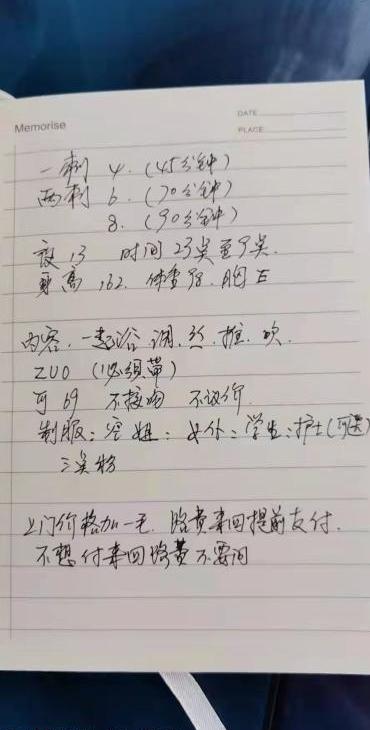 Memorise
DATE
PLACE
一刺 4. (45分钟)
两刺 6. (70分钟)
8. (90分钟)
夜 13 时间 23点至9点.
身高 162. 体重98. 胸E
内容. 一起浴 调. 丝. 推. 吹.
ZUO (必须带)
可 69 不接吻 不议价
制服: 空姐: 女仆: 学生: 护士(可选)
三点粉
上门价格加一毛. 路费来回提前支付.
不想付来回路费不要问